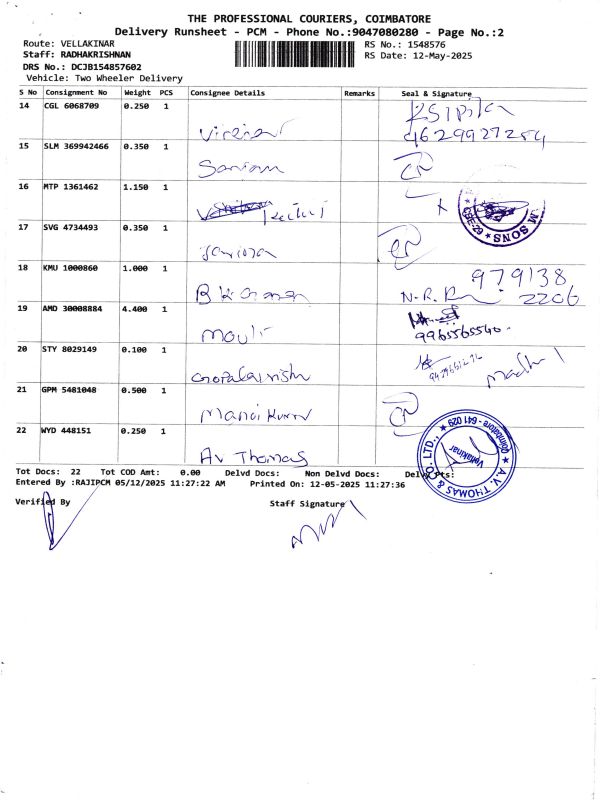 THE PROFESSIONAL COURIERS, COIMBATORE
Delivery Runsheet - PCM - Phone No.:9047080280 - Page No.:2
Route: VELLAKINAR RS No.: 1548576
Staff: RADHAKRISHNAN RS Date: 12-May-2025
DRS No.: DCJB154857602
Vehicle: Two Wheeler Delivery
S No Consignment No Weight PCS Consignee Details Remarks Seal & Signature
14 CGL 6068709 0.250 1
15 SLM 369942466 0.350 1
16 MTP 1361462 1.150 1
M. SONS
17 SVG 4734493 0.350 1
18 KMU 1000860 1.000 1 N.R. 979138 2206
19 AMD 30008884 4.400 1 Mouli 9965565540
20 STY 8029149 0.100 1
21 GPM 5481048 0.500 1 Manoj Kumar
22 WYD 448151 0.250 1 Av Thomas
A.V. THOMAS & CO. LTD., Vellakinar Coimbatore - 641 029
Tot Docs: 22 Tot COD Amt: 0.00 Delvd Docs: Non Delvd Docs: Delvd Wts:
Entered By :RAJIPCM 05/12/2025 11:27:22 AM Printed On: 12-05-2025 11:27:36
Verified By Staff Signature